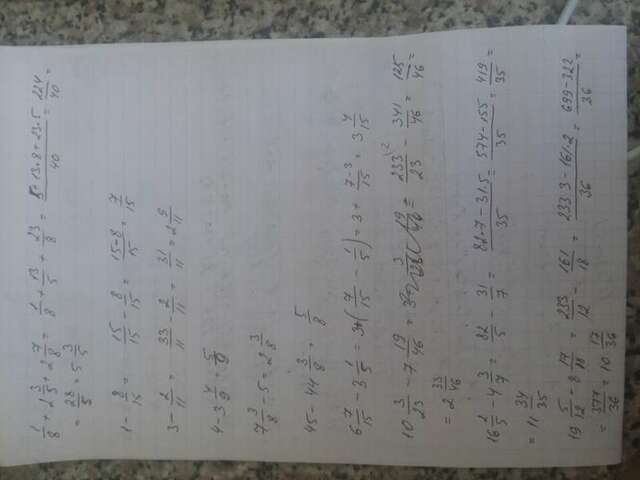 1/8 + 2 3/5 + 2 7/8 = 1/8 + 13/5 + 23/8 = 13·8 + 23·5/40 = 224/40 =
= 28/5 = 5 3/5
1 - 8/15 = 15/15 - 8/15 = 15-8/15 = 7/15
3 - 2/11 = 33/11 - 2/11 = 31/11 = 2 9/11
4 - 3 4/9 = 5/9
7 3/8 - 5 = 2 3/8
45 - 44 3/8 = 5/8
6 7/15 - 3 1/5 = 3+(7/15 - 1/5) = 3 + 7-3/15 = 3 4/15
10 3/23 - 7 19/46 = 233/23 - 341/46 = 125/46
= 2 33/46
16 2/5 - 4 3/7 = 82/5 - 31/7 = 82·7 - 31·5/35 = 574-155/35 = 419/35 =
= 11 34/35
19 5/12 - 8 17/18 = 233/12 - 161/18 = 233·3 - 161·2/36 = 699-322/36 =
= 377/36 = 10 17/36